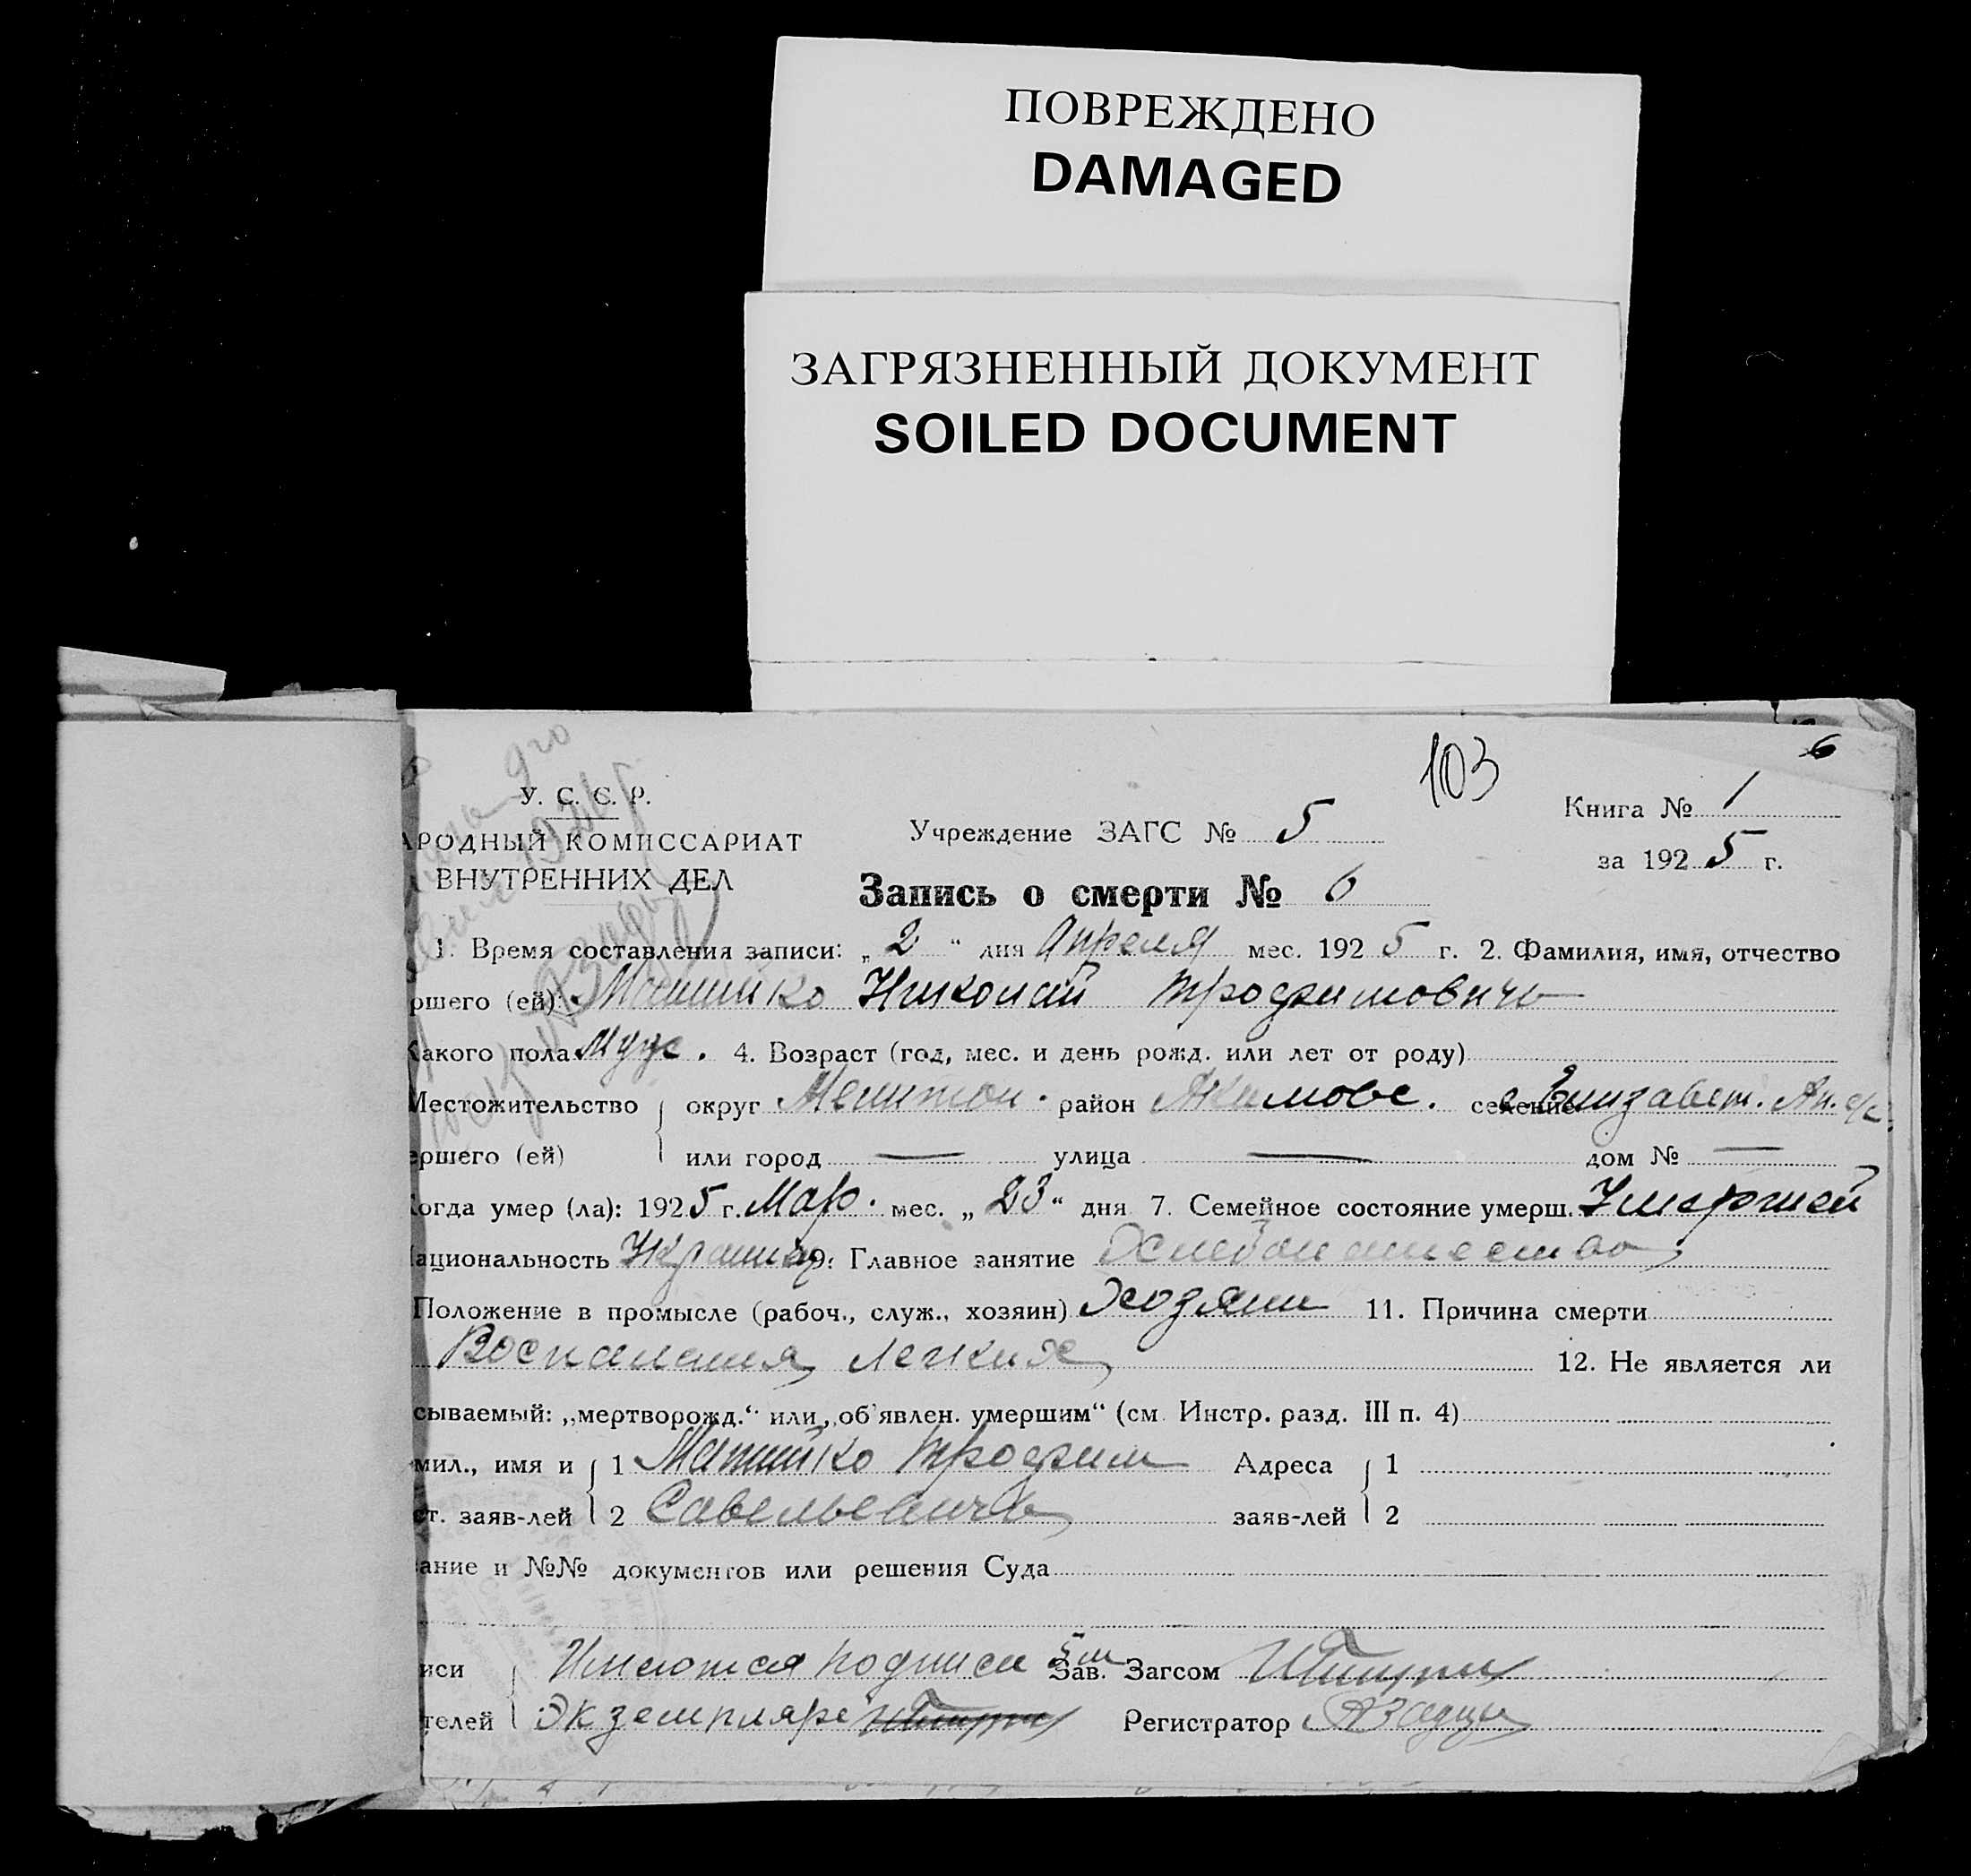 ПОВРЕЖДЕНО
DAMAGED
ЗАГРЯЗНЕННЫЙ ДОКУМЕНТ
SOILED DOCUMENT
103
6
У. С. С. Р.
АРОДНЫЙ КОМИССАРИАТ
ВНУТРЕННИХ ДЕЛ
Учреждение ЗАГС № 5
Книга № 1
за 1925 г.
Запись о смерти № 6
1. Время составления записи: „2" дня Апреля мес. 1925 г. 2. Фамилия, имя, отчество
ршего (ей) Матийко Николай Трофимовичь
Какого пола Муж. 4. Возраст (год, мес. и день рожд. или лет от роду)
Местожительство округ Мелитоп. район Акимовс. селение Елизавет.
ершего (ей) или город — улица — дом № —
Когда умер (ла): 1925 г. Мар. мес. „23" дня 7. Семейное состояние умерш.
ациональность Украин 9. Главное занятие
Положение в промысле (рабоч., служ., хозяин) Хозяин 11. Причина смерти
Воспаления легких 12. Не является ли
сываемый: „мертворожд.“ или „об'явлен. умершим“ (см. Инстр. разд. III п. 4)
мил., имя и 1 Матийко Трофим Адреса 1
ст. заяв-лей 2 Савельевичь заяв-лей 2
ание и №№ документов или решения Суда
иси Имеются подписи Зав. Загсом
телей Экземпляре Регистратор